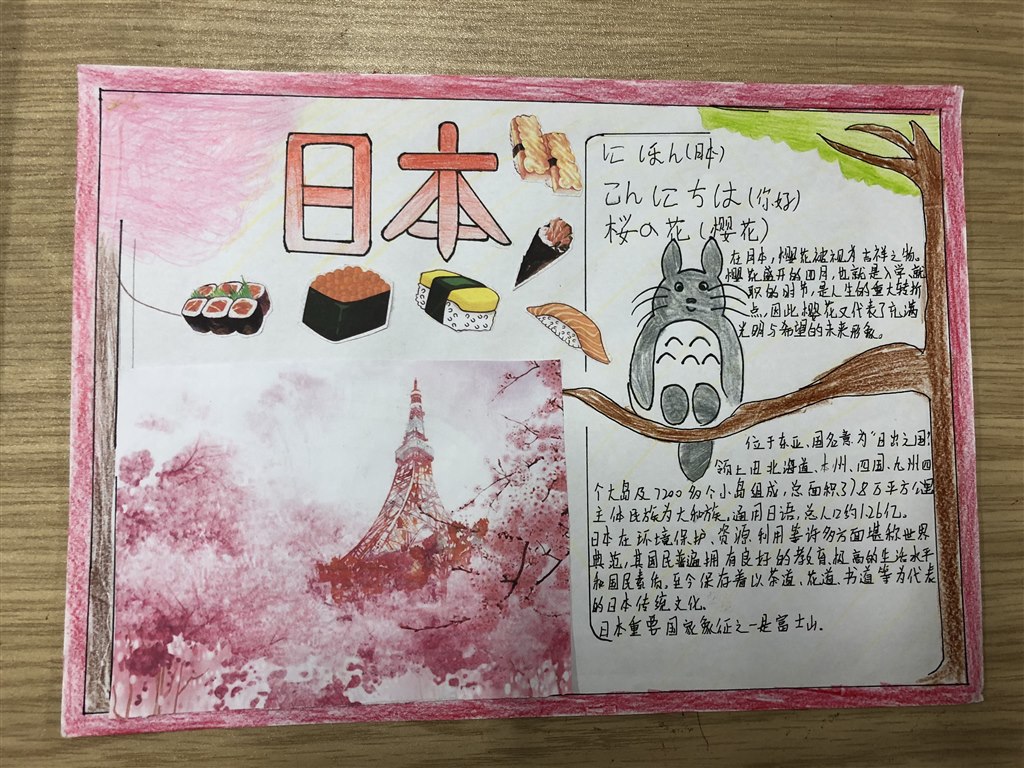 日本
にほん(日本)
こんにちは(你好)
桜の花(樱花)
在日本,樱花被视为吉祥之物。
樱花盛开的四月,也就是入学、就
职的时节,是人生的重大转折
点,因此樱花又代表了充满
光明与希望的未来形象。
位于东亚、国名意为“日出之国”
领土由北海道、本州、四国、九州四
个大岛及7200多个小岛组成,总面积37.8万平方公里
主体民族为大和族,通用日语,总人口约1.26亿。
日本在环境保护、资源利用等许多方面堪称世界
典范,其国民普遍拥有良好的教育、极高的生活水平
和国民素质。至今保存着以茶道、花道、书道等为代表
的日本传统文化。
日本重要国家象征之一是富士山.